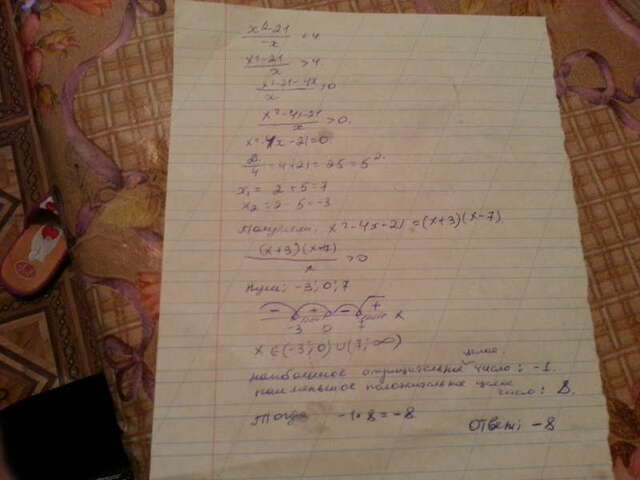 x²-21 / x > 4
x²-21-4x / x > 0
x²-4x-21 / x > 0.
x²-4x-21=0
D/4 = 4+21=25=5².
x₁= 2+5=7
x₂=2-5=-3
x²-4x-21=(x+3)(x-7)
(x+3)(x-7) / x > 0
-3; 0; 7
- + - + x
-3 0 7
x∈(-3;0)∪(7;∞)
целое
наибольшее отрицательное число: -1.
наименьшее положительное целое
число: 8.
Тогда -1•8=-8
Ответ: -8